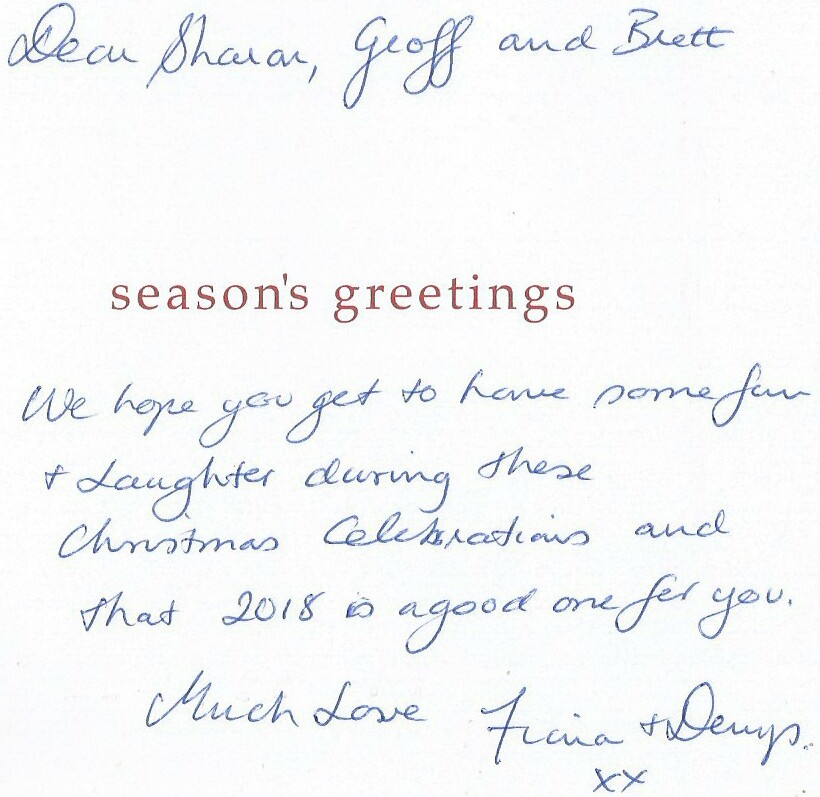 Dear Sharon, Geoff and Brett
season's greetings
We hope you get to have some fun
+ Laughter during these
Christmas Celebrations and
that 2018 is a good one for you.
Much Love Fiona + Denys.
xx